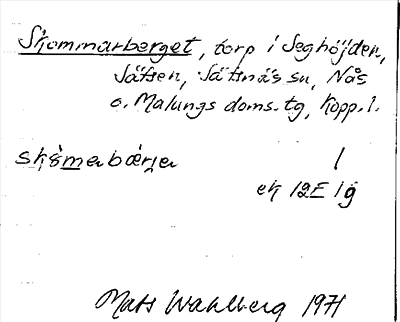 Skommarberget, torp i Seghöjden,
Säfsen, Säfsnäs sn, Nås
o. Malungs doms.tg, Kopp. l.
skömabärja /
ek 12E 1g
Mats Wahlberg 1971